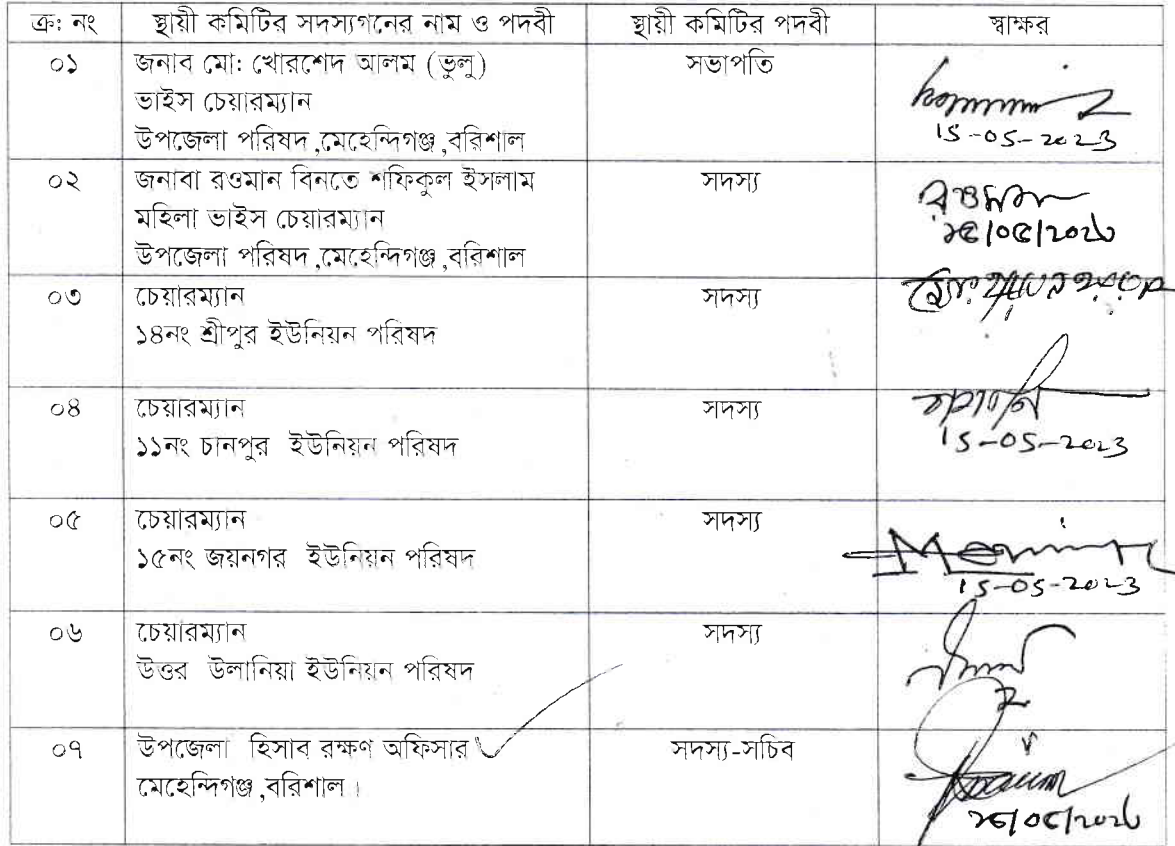 ক্র: নং স্থায়ী কমিটির সদস্যগনের নাম ও পদবী স্থায়ী কমিটির পদবী স্বাক্ষর
০১ জনাব মো: খোরশেদ আলম (ভুলু) সভাপতি
ভাইস চেয়ারম্যান
উপজেলা পরিষদ ,মেহেন্দিগঞ্জ ,বরিশাল 15-05-2023
০২ জনাবা রওমান বিনতে শফিকুল ইসলাম সদস্য
মহিলা ভাইস চেয়ারম্যান
উপজেলা পরিষদ ,মেহেন্দিগঞ্জ ,বরিশাল ১৫/০৫/২০২৩
০৩ চেয়ারম্যান সদস্য
১৪নং শ্রীপুর ইউনিয়ন পরিষদ
০৪ চেয়ারম্যান সদস্য
১১নং চানপুর ইউনিয়ন পরিষদ 15-05-2023
০৫ চেয়ারম্যান সদস্য
১৫নং জয়নগর ইউনিয়ন পরিষদ 15-05-2023
০৬ চেয়ারম্যান সদস্য
উত্তর উলানিয়া ইউনিয়ন পরিষদ
০৭ উপজেলা হিসাব রক্ষণ অফিসার সদস্য-সচিব
মেহেন্দিগঞ্জ ,বরিশাল । ১৫/০৫/২০২৩